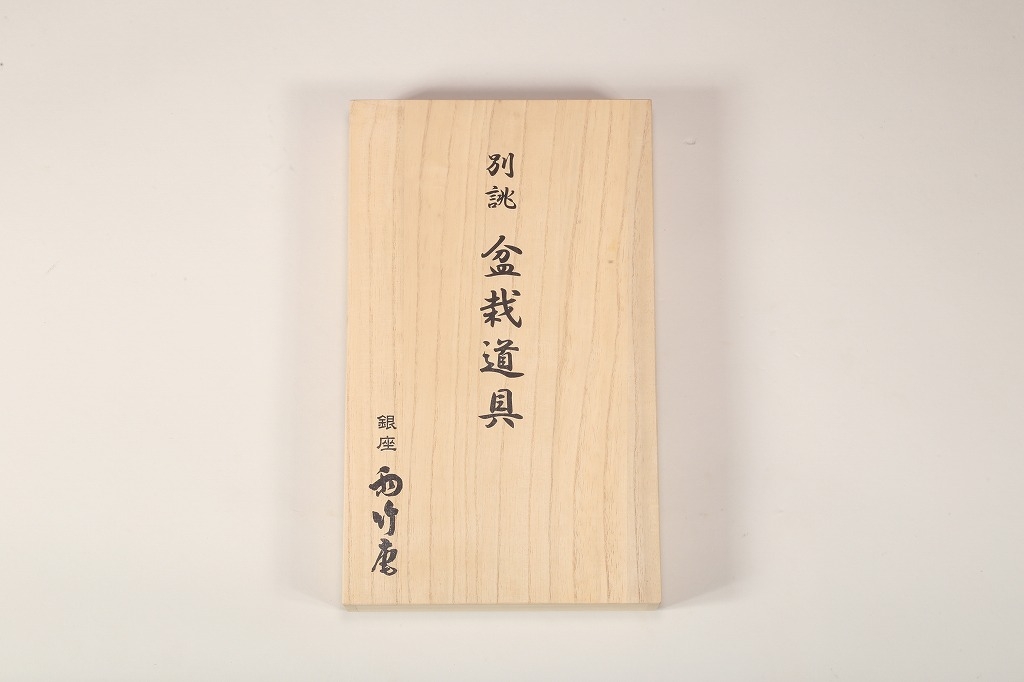 別誂 盆栽道具
銀座 雨竹庵